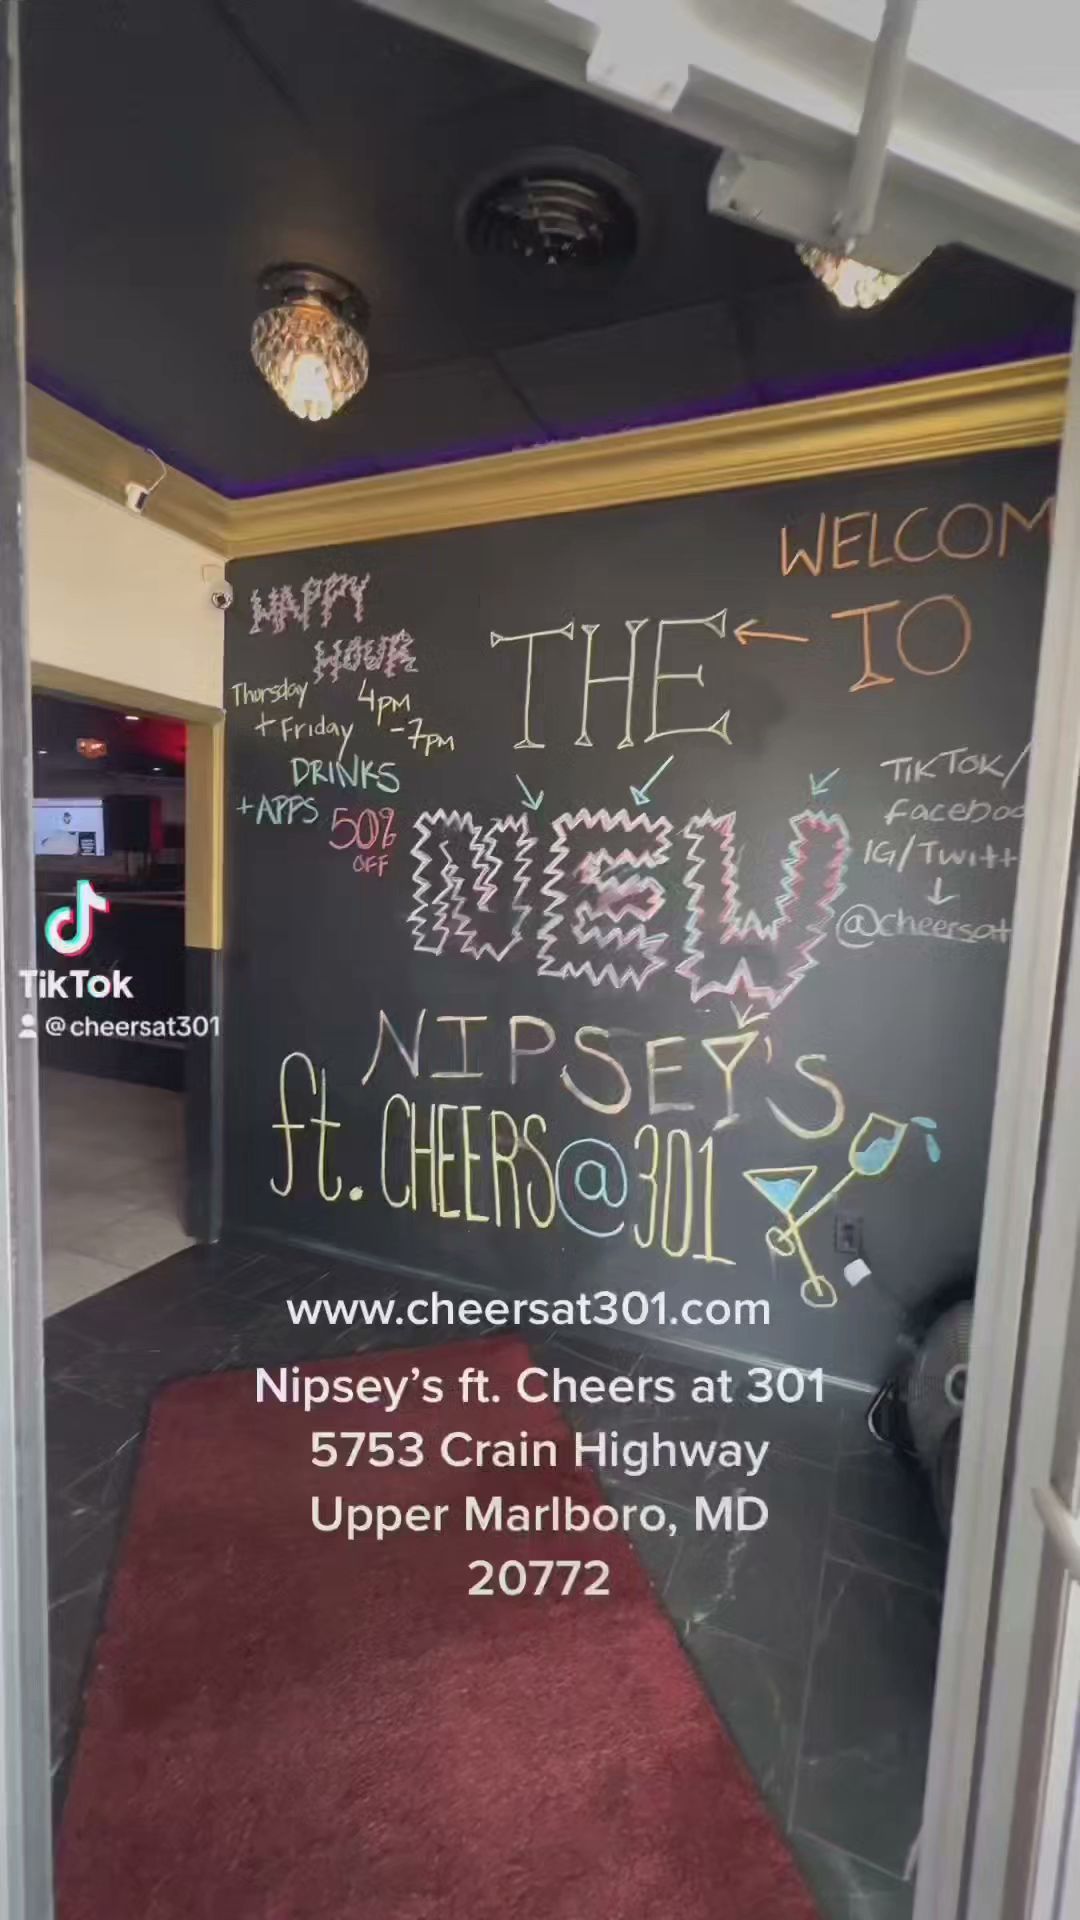 WELCOM
TO
THE
NEW
NIPSEY'S
ft. CHEERS@301
HAPPY
HOUR
Thursday 4pm
+ Friday -7pm
DRINKS
+ APPS 50%
OFF
TikTok/
faceboo
IG/Twitt
@cheersat
TikTok
@cheersat301
www.cheersat301.com
Nipsey's ft. Cheers at 301
5753 Crain Highway
Upper Marlboro, MD
20772